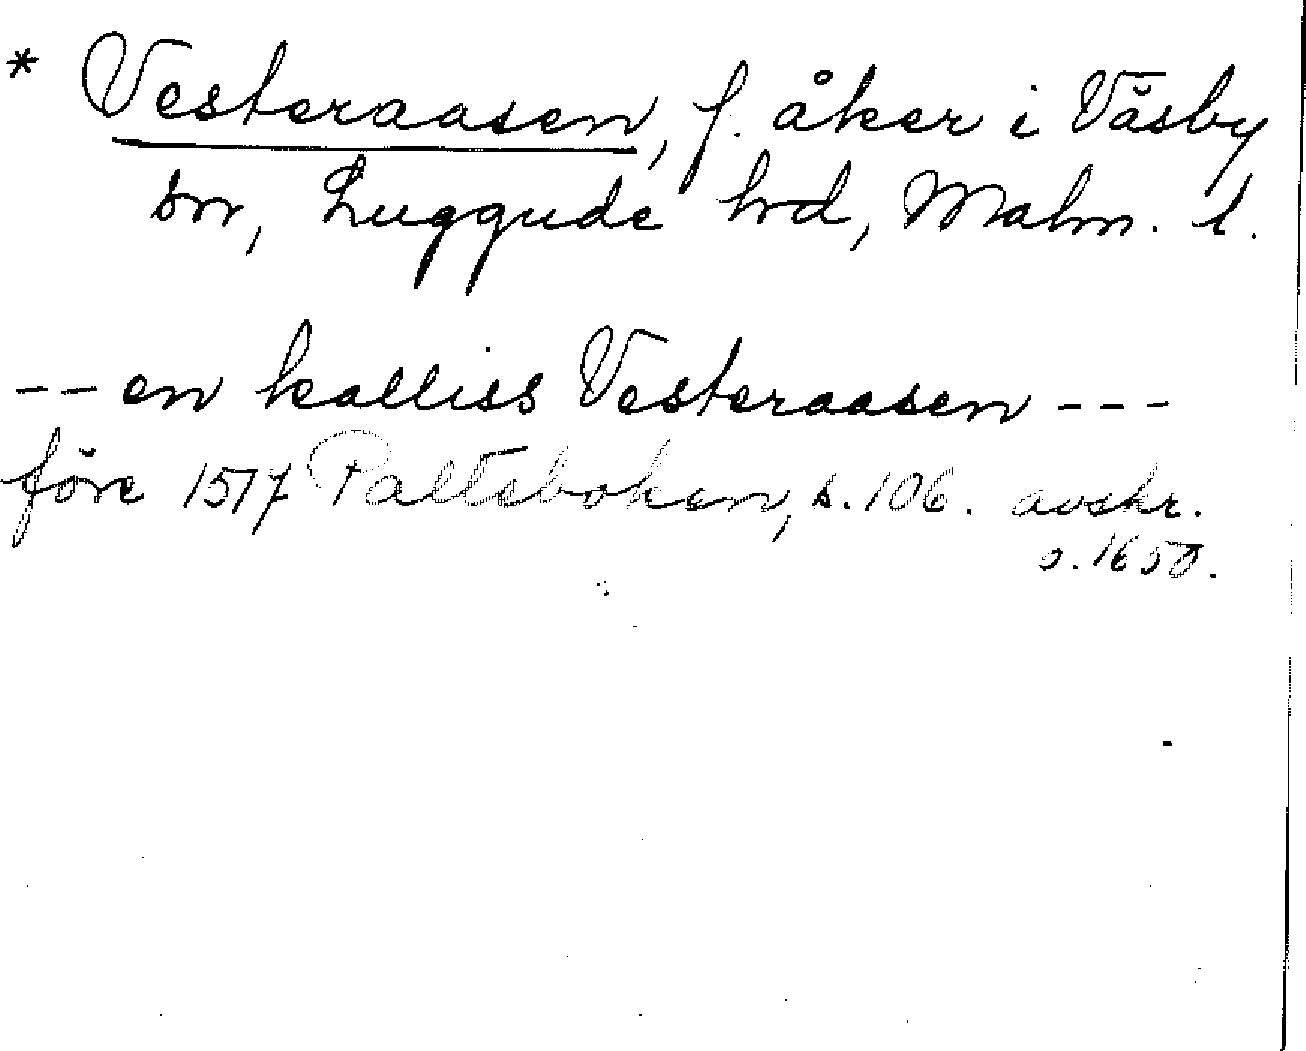 * Vesteraasen, f. åker i Väsby
sn, Luggude hrd, Malm. l.
-- en kalliss Vesteraasen ---
före 1577 Palteboken, s. 106. avskr.
o. 1650.